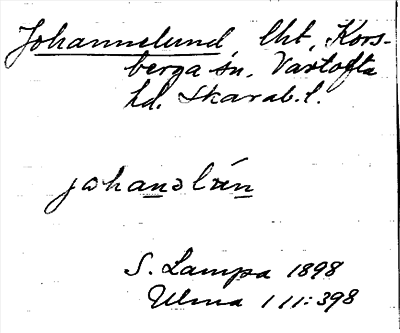 Johannelund, lht, Kors-
berga sn, Vartofta
hd. Skarab. l.
johanəlún
S. Lampa 1898
Ulma 111:398